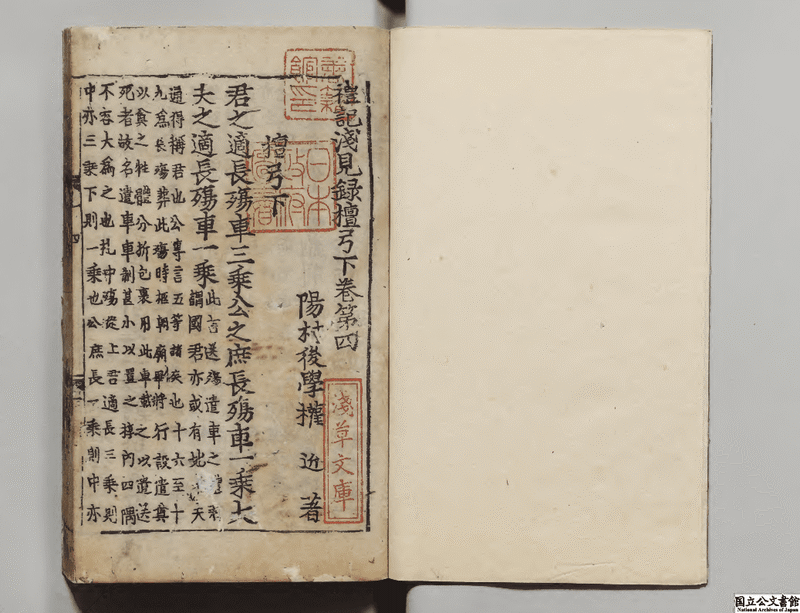 禮記淺見錄檀弓下卷第四
陽村後學權近著
檀弓下
君之適長殤車三乘公之庶長殤車一乘大
夫之適長殤車一乘
此言送殤遣車之禮
謂國君亦或有地
通得稱君也公專言五等諸侯也十六至十
九爲長殤葬此殤時柩朝廟畢將行設遣奠
以奠之牲體分折包裹用此車載之以遣送
死者故名遣車車制甚小以置之槨內四隅
不容大爲之也礼中殤從上君適長三乘則
中亦三乘下則一乘也公庶長一乘則中亦
四
書籍館印
日本政府圖書
淺草文庫
国立公文書館
National Archives of Japan